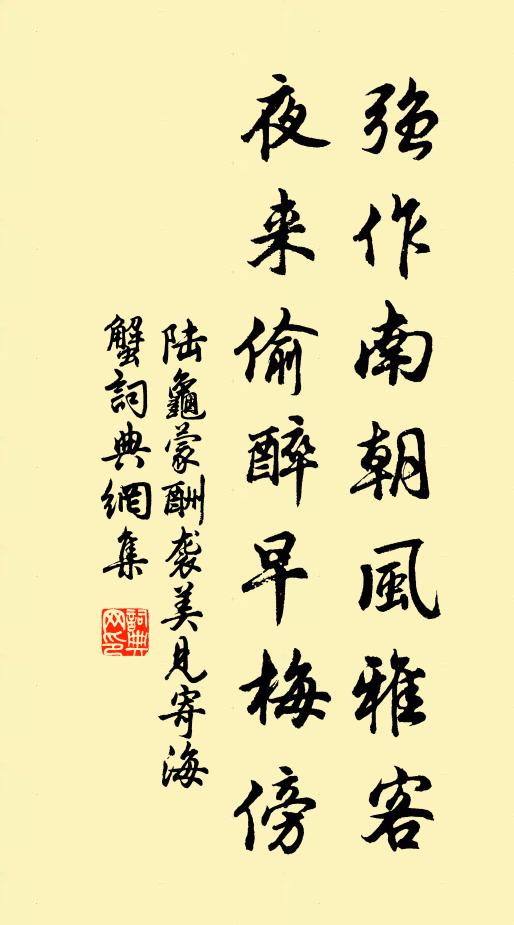 强作南朝風雅客
夜来偷醉早梅傍
陆龜蒙酬袭美見寄海
蟹詞典網集
詞典
网印